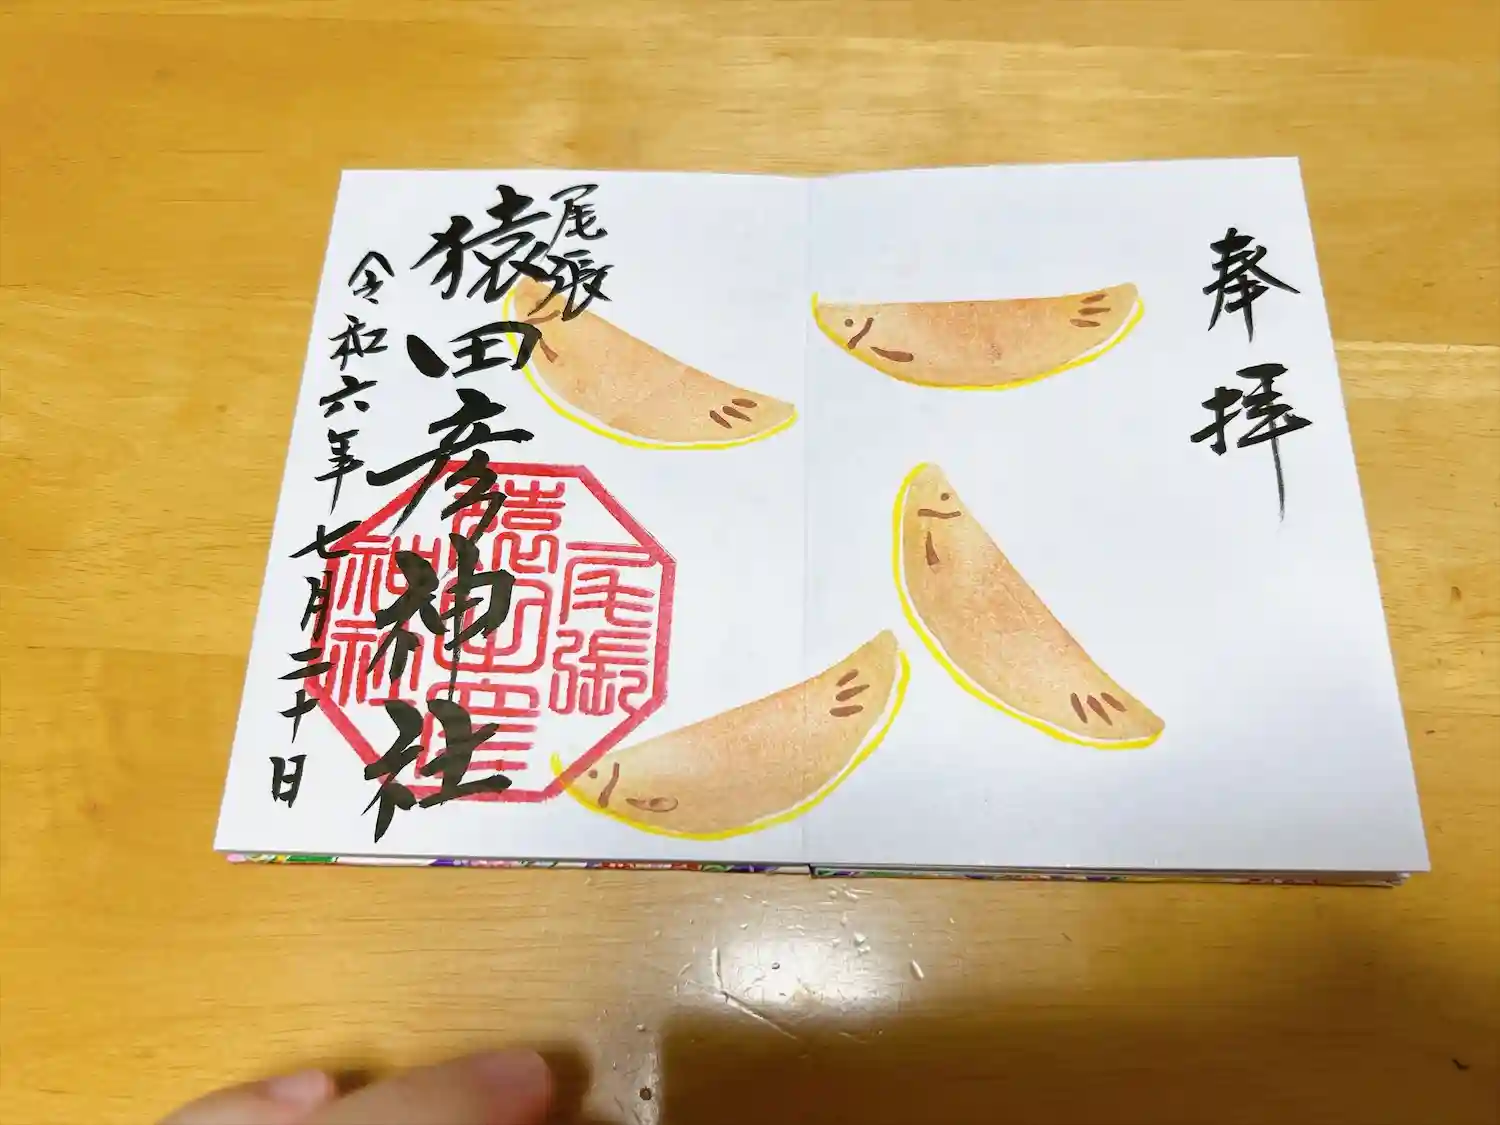 奉拝
尾張
猿田彦神社
令和六年七月二十日
尾張
猿田彦
神社